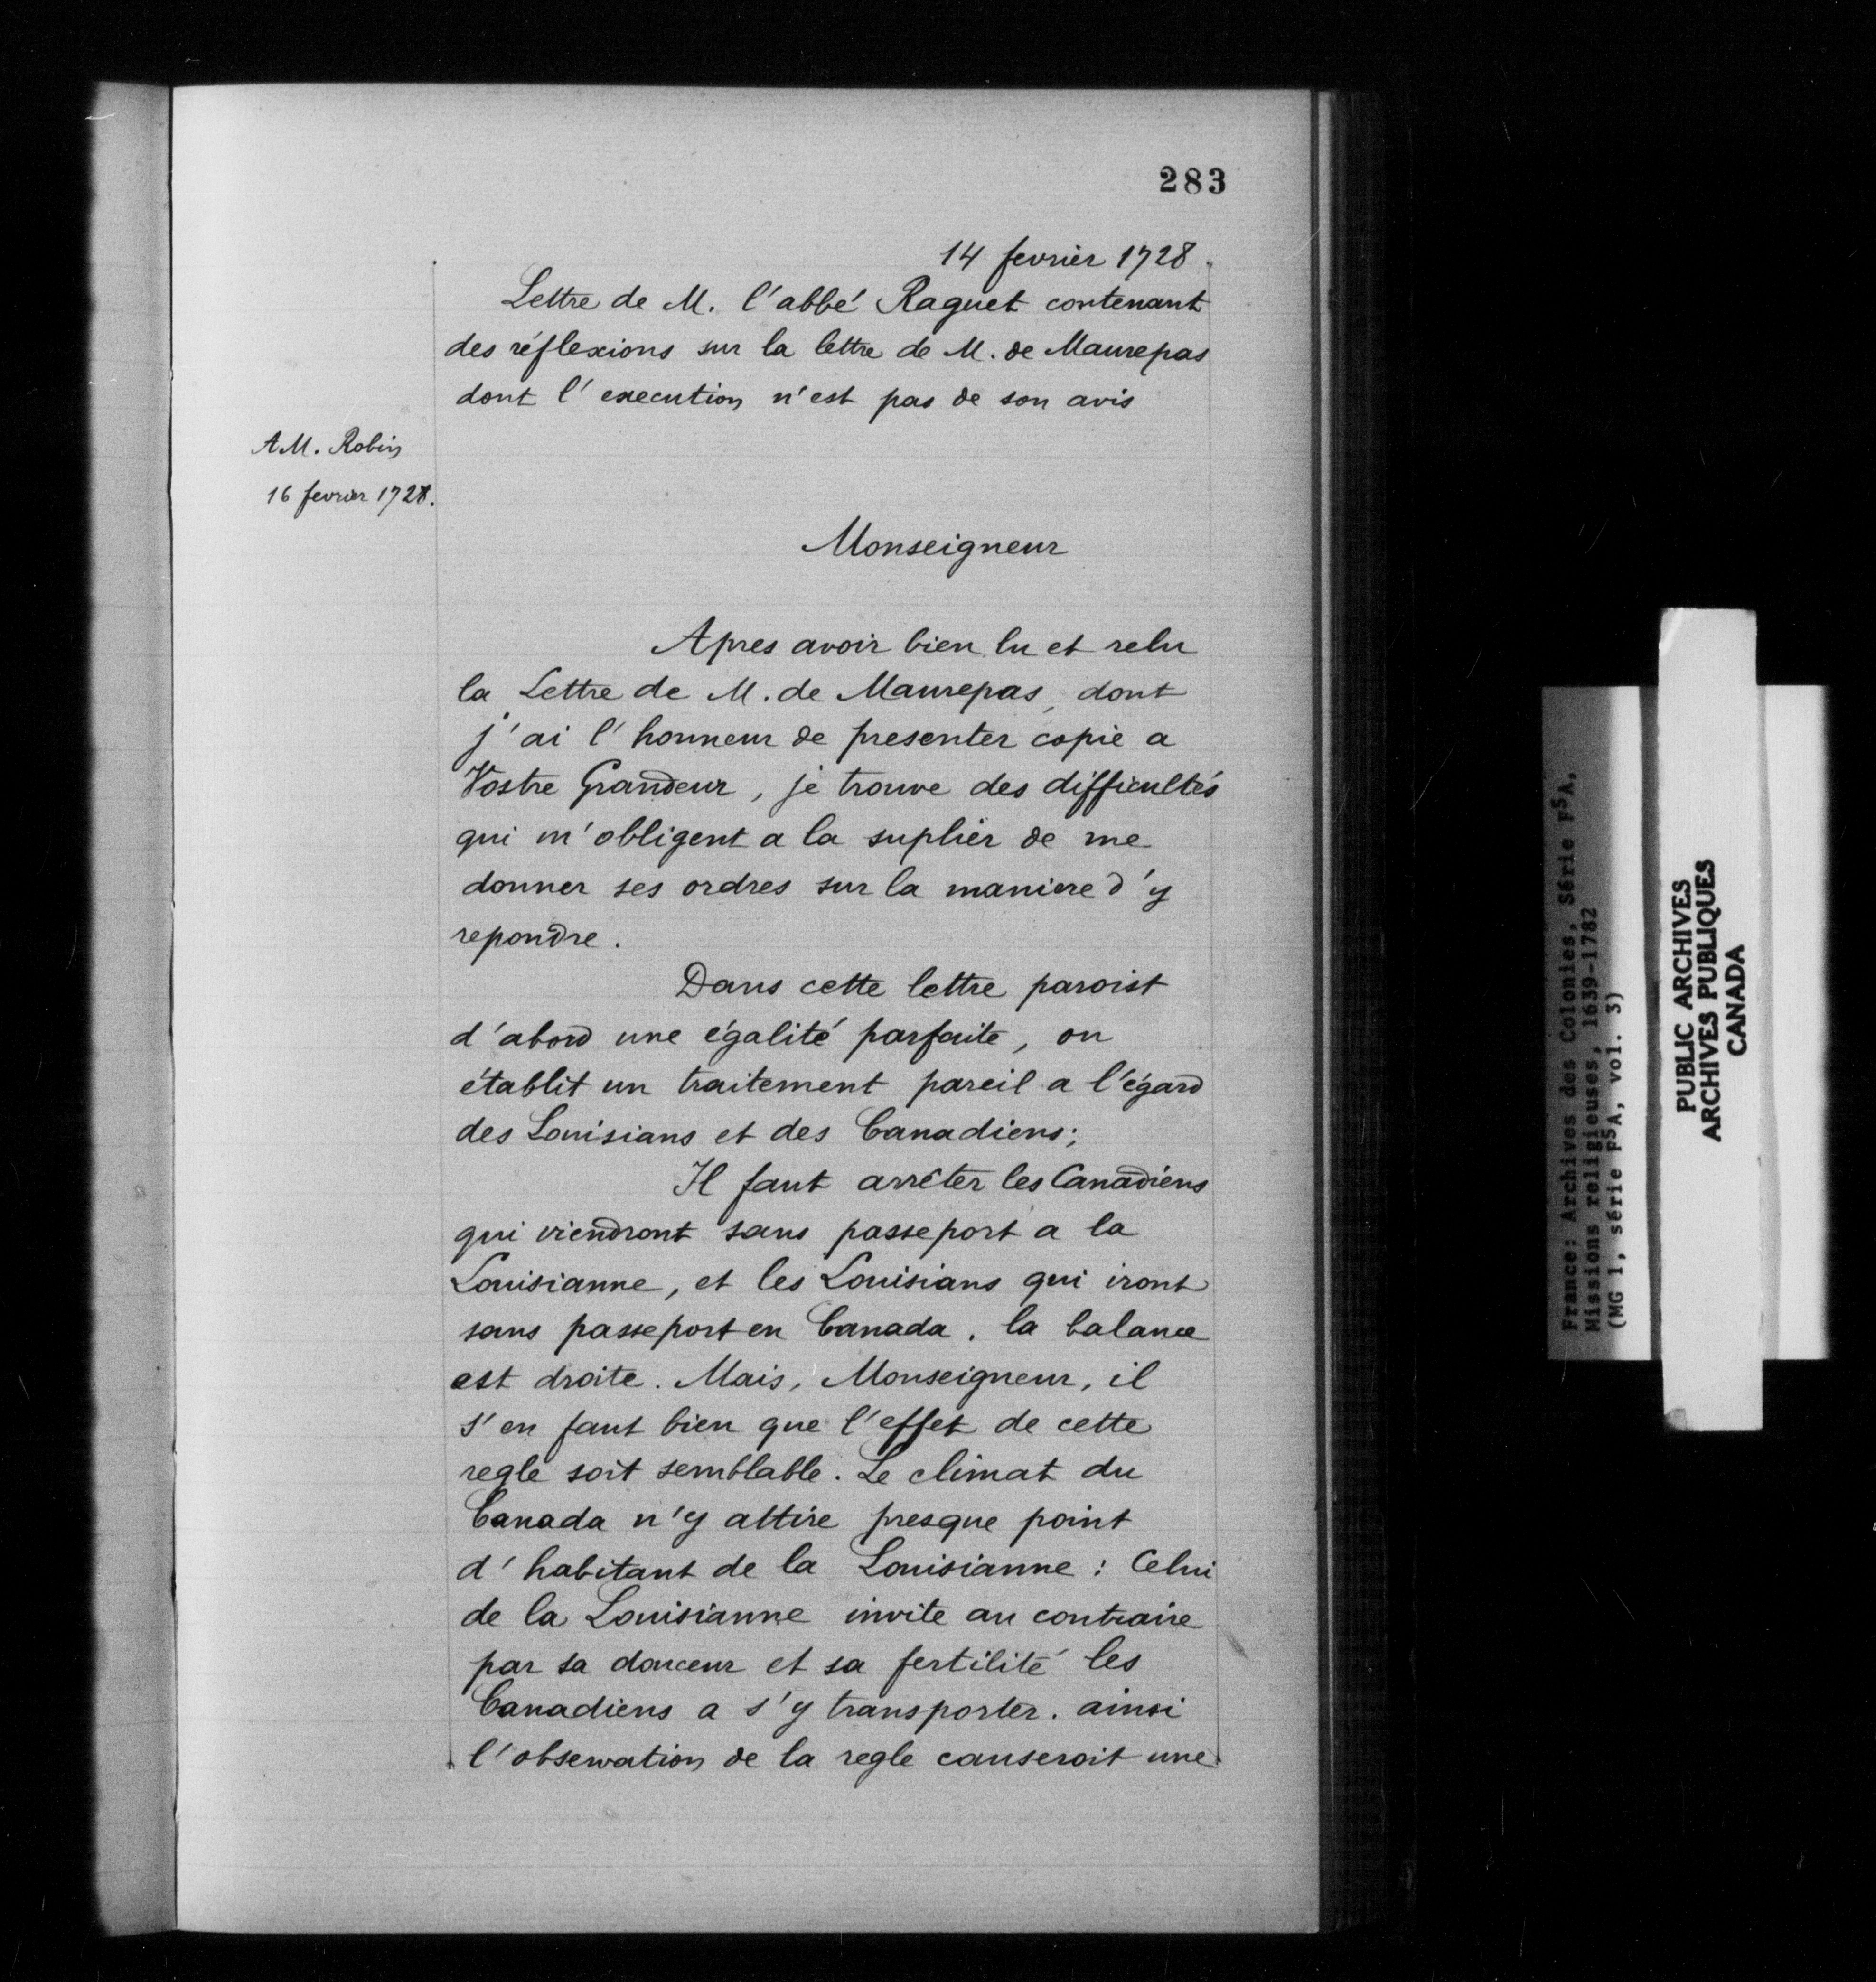 283
14 fevrier 1728.
Lettre de M. l'abbé Raguet contenant
des réflexions sur la lettre de M. de Maurepas
dont l'execution n'est pas de son avis
A M. Robin
16 fevrier 1728.
Monseigneur
Apres avoir bien lu et relu
la Lettre de M. de Maurepas, dont
j'ai l'honneur de presenter copie a
Vostre Grandeur, je trouve des difficultés
qui m'obligent a la suplier de me
donner ses ordres sur la maniere d'y
repondre.
Dans cette lettre paroist
d'abord une égalité parfaite, on
établit un traitement pareil a l'égard
des Louisians et des Canadiens;
Il faut arrêter les Canadiens
qui viendront sans passeport a la
Louisianne, et les Louisians qui iront
sans passeport en Canada. la balance
est droite. Mais, Monseigneur, il
s'en faut bien que l'effet de cette
regle soit semblable. Le climat du
Canada n'y attire presque point
d'habitant de la Louisianne : Celui
de la Louisianne invite au contraire
par sa douceur et sa fertilité les
Canadiens a s'y transporter. ainsi
l'observation de la regle causeroit une
France: Archives des Colonies, Série F5A,
Missions religieuses, 1639-1782
(MG 1, série F5A, vol. 3)
PUBLIC ARCHIVES
ARCHIVES PUBLIQUES
CANADA